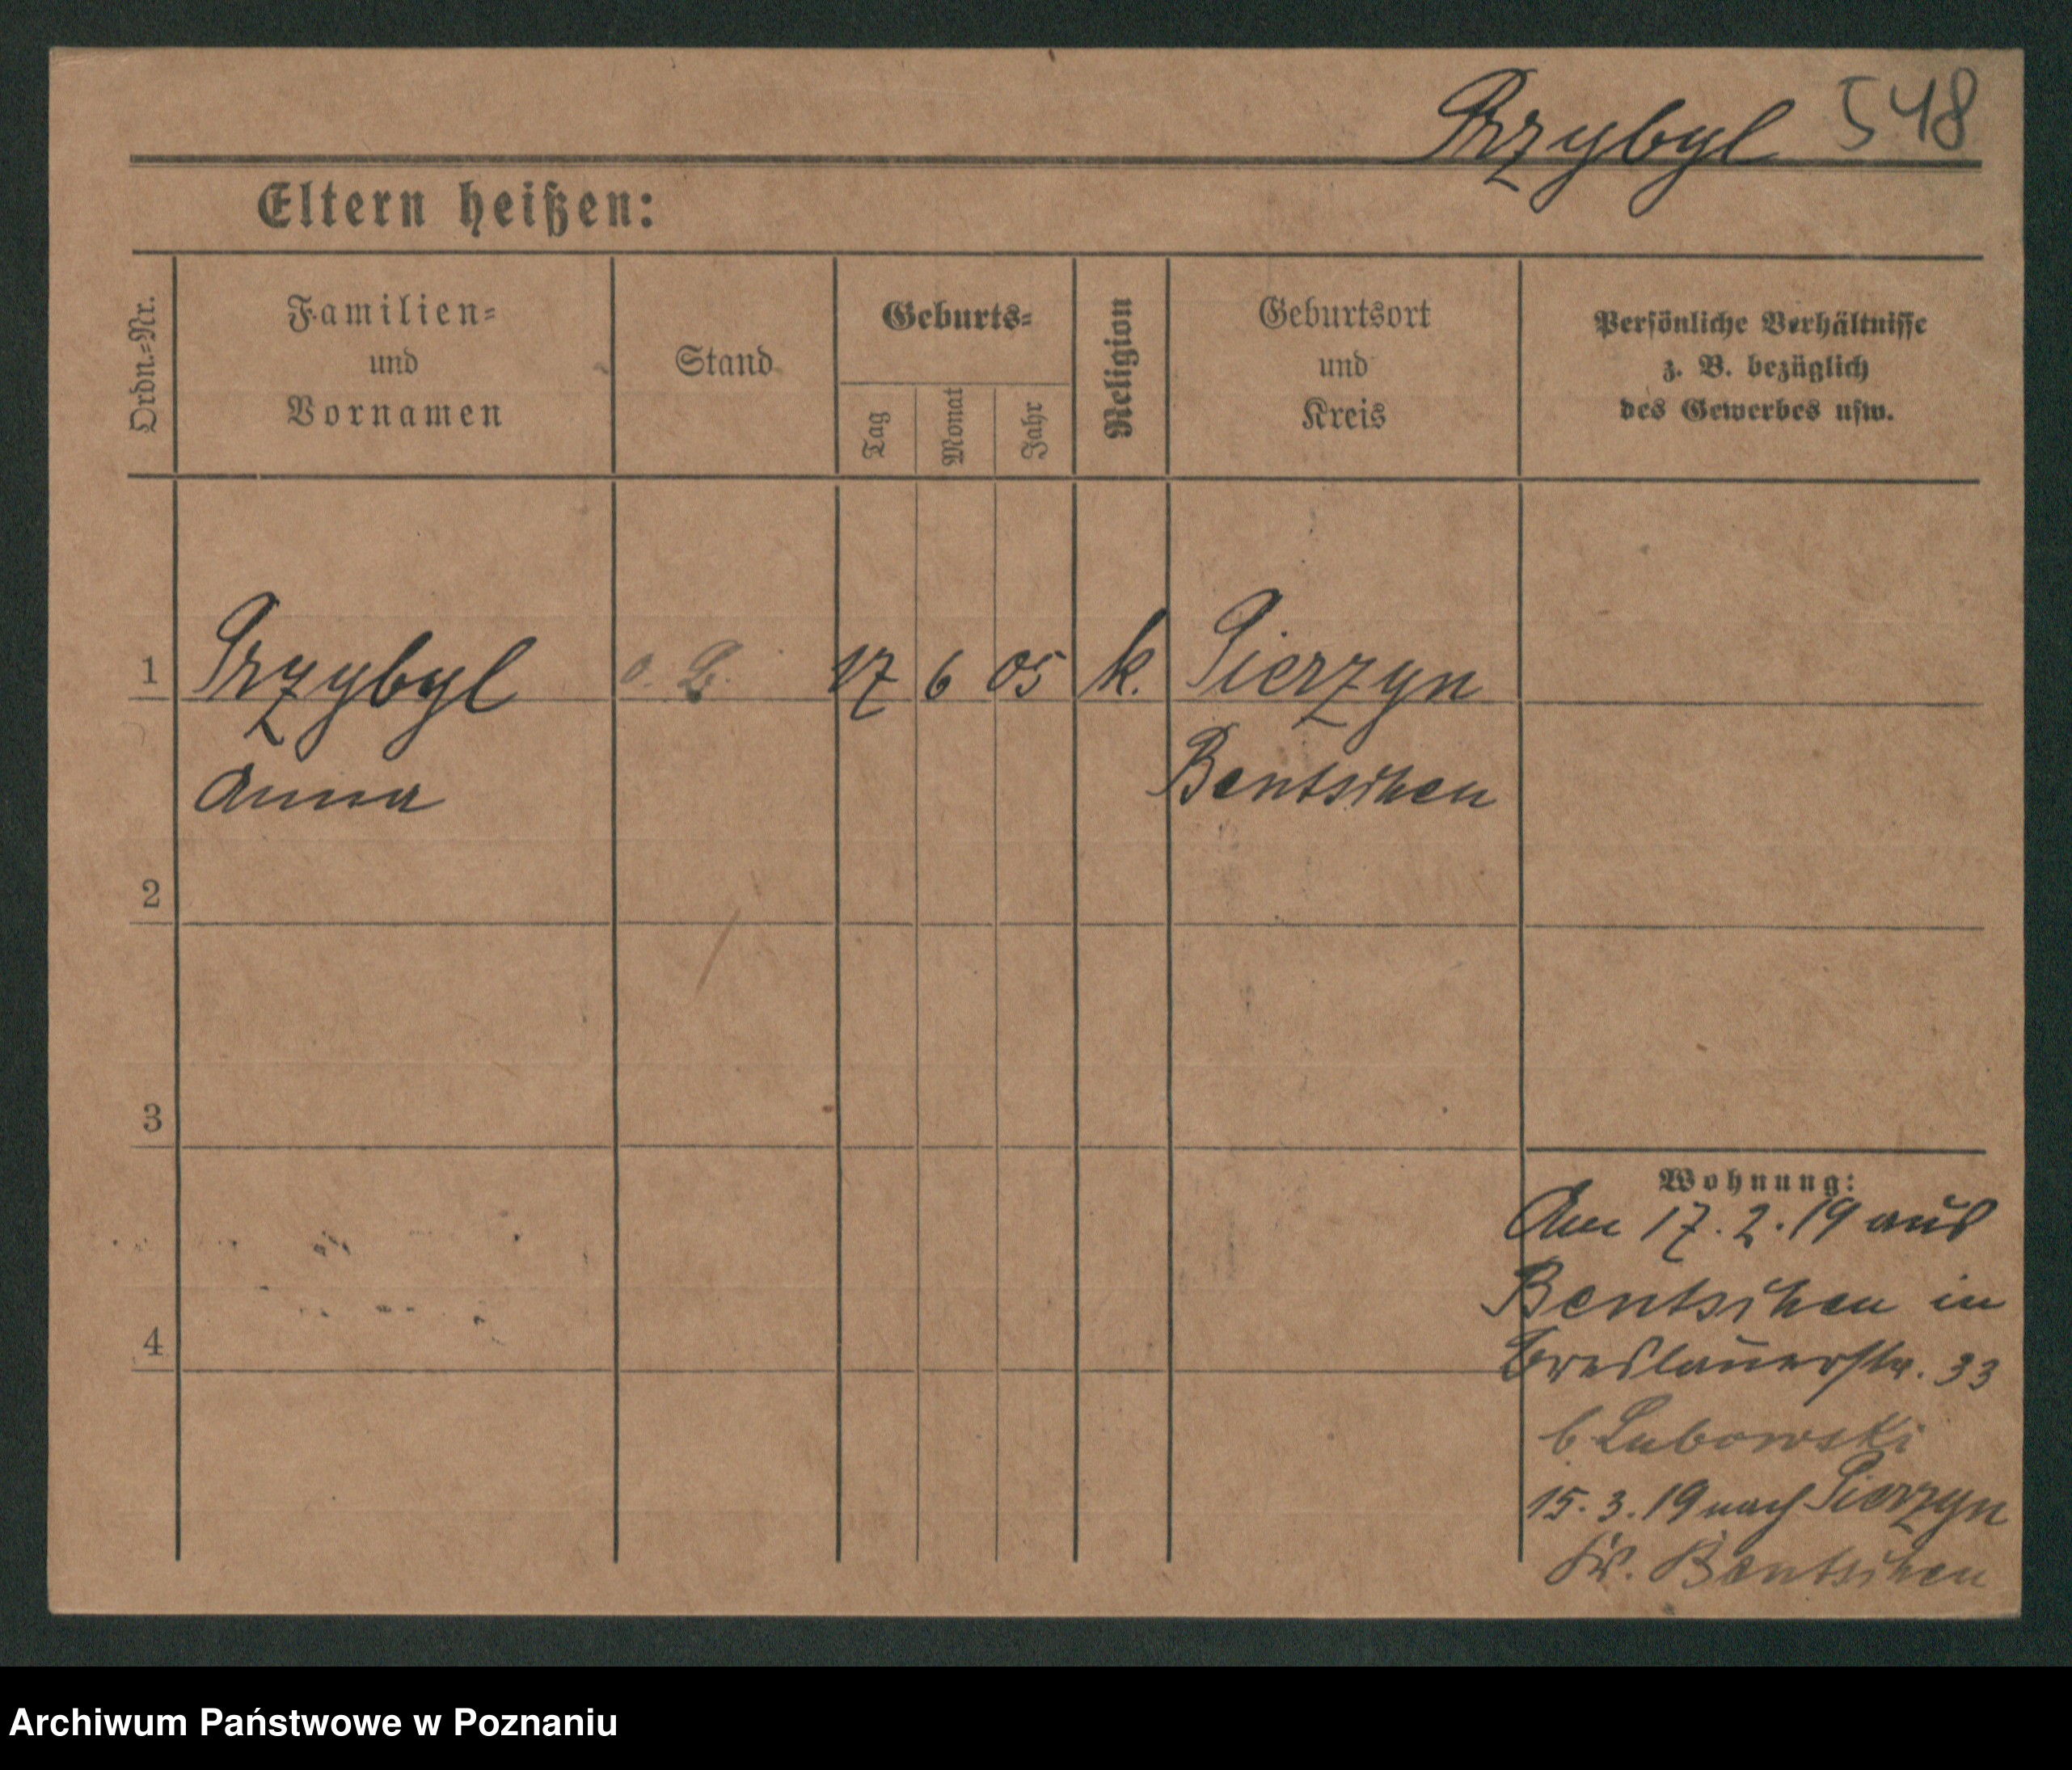 Przybyl 548
Eltern heißen:
Ordn.=Nr.
Familien=
und
Vornamen
Stand
Geburts=
Tag
Monat
Jahr
Religion
Geburtsort
und
Kreis
Persönliche Verhältnisse
z. B. bezüglich
des Gewerbes usw.
1 Przybyl o. B. 17 6 05 k. Pierzyn
Anna Bentschen
2
3
4
Wohnung:
Am 17.2.19 aus
Bentschen in
Breslauerstr. 33
b. Lubowski
15.3.19 nach Pierzyn
Kr. Bentschen
Archiwum Państwowe w Poznaniu